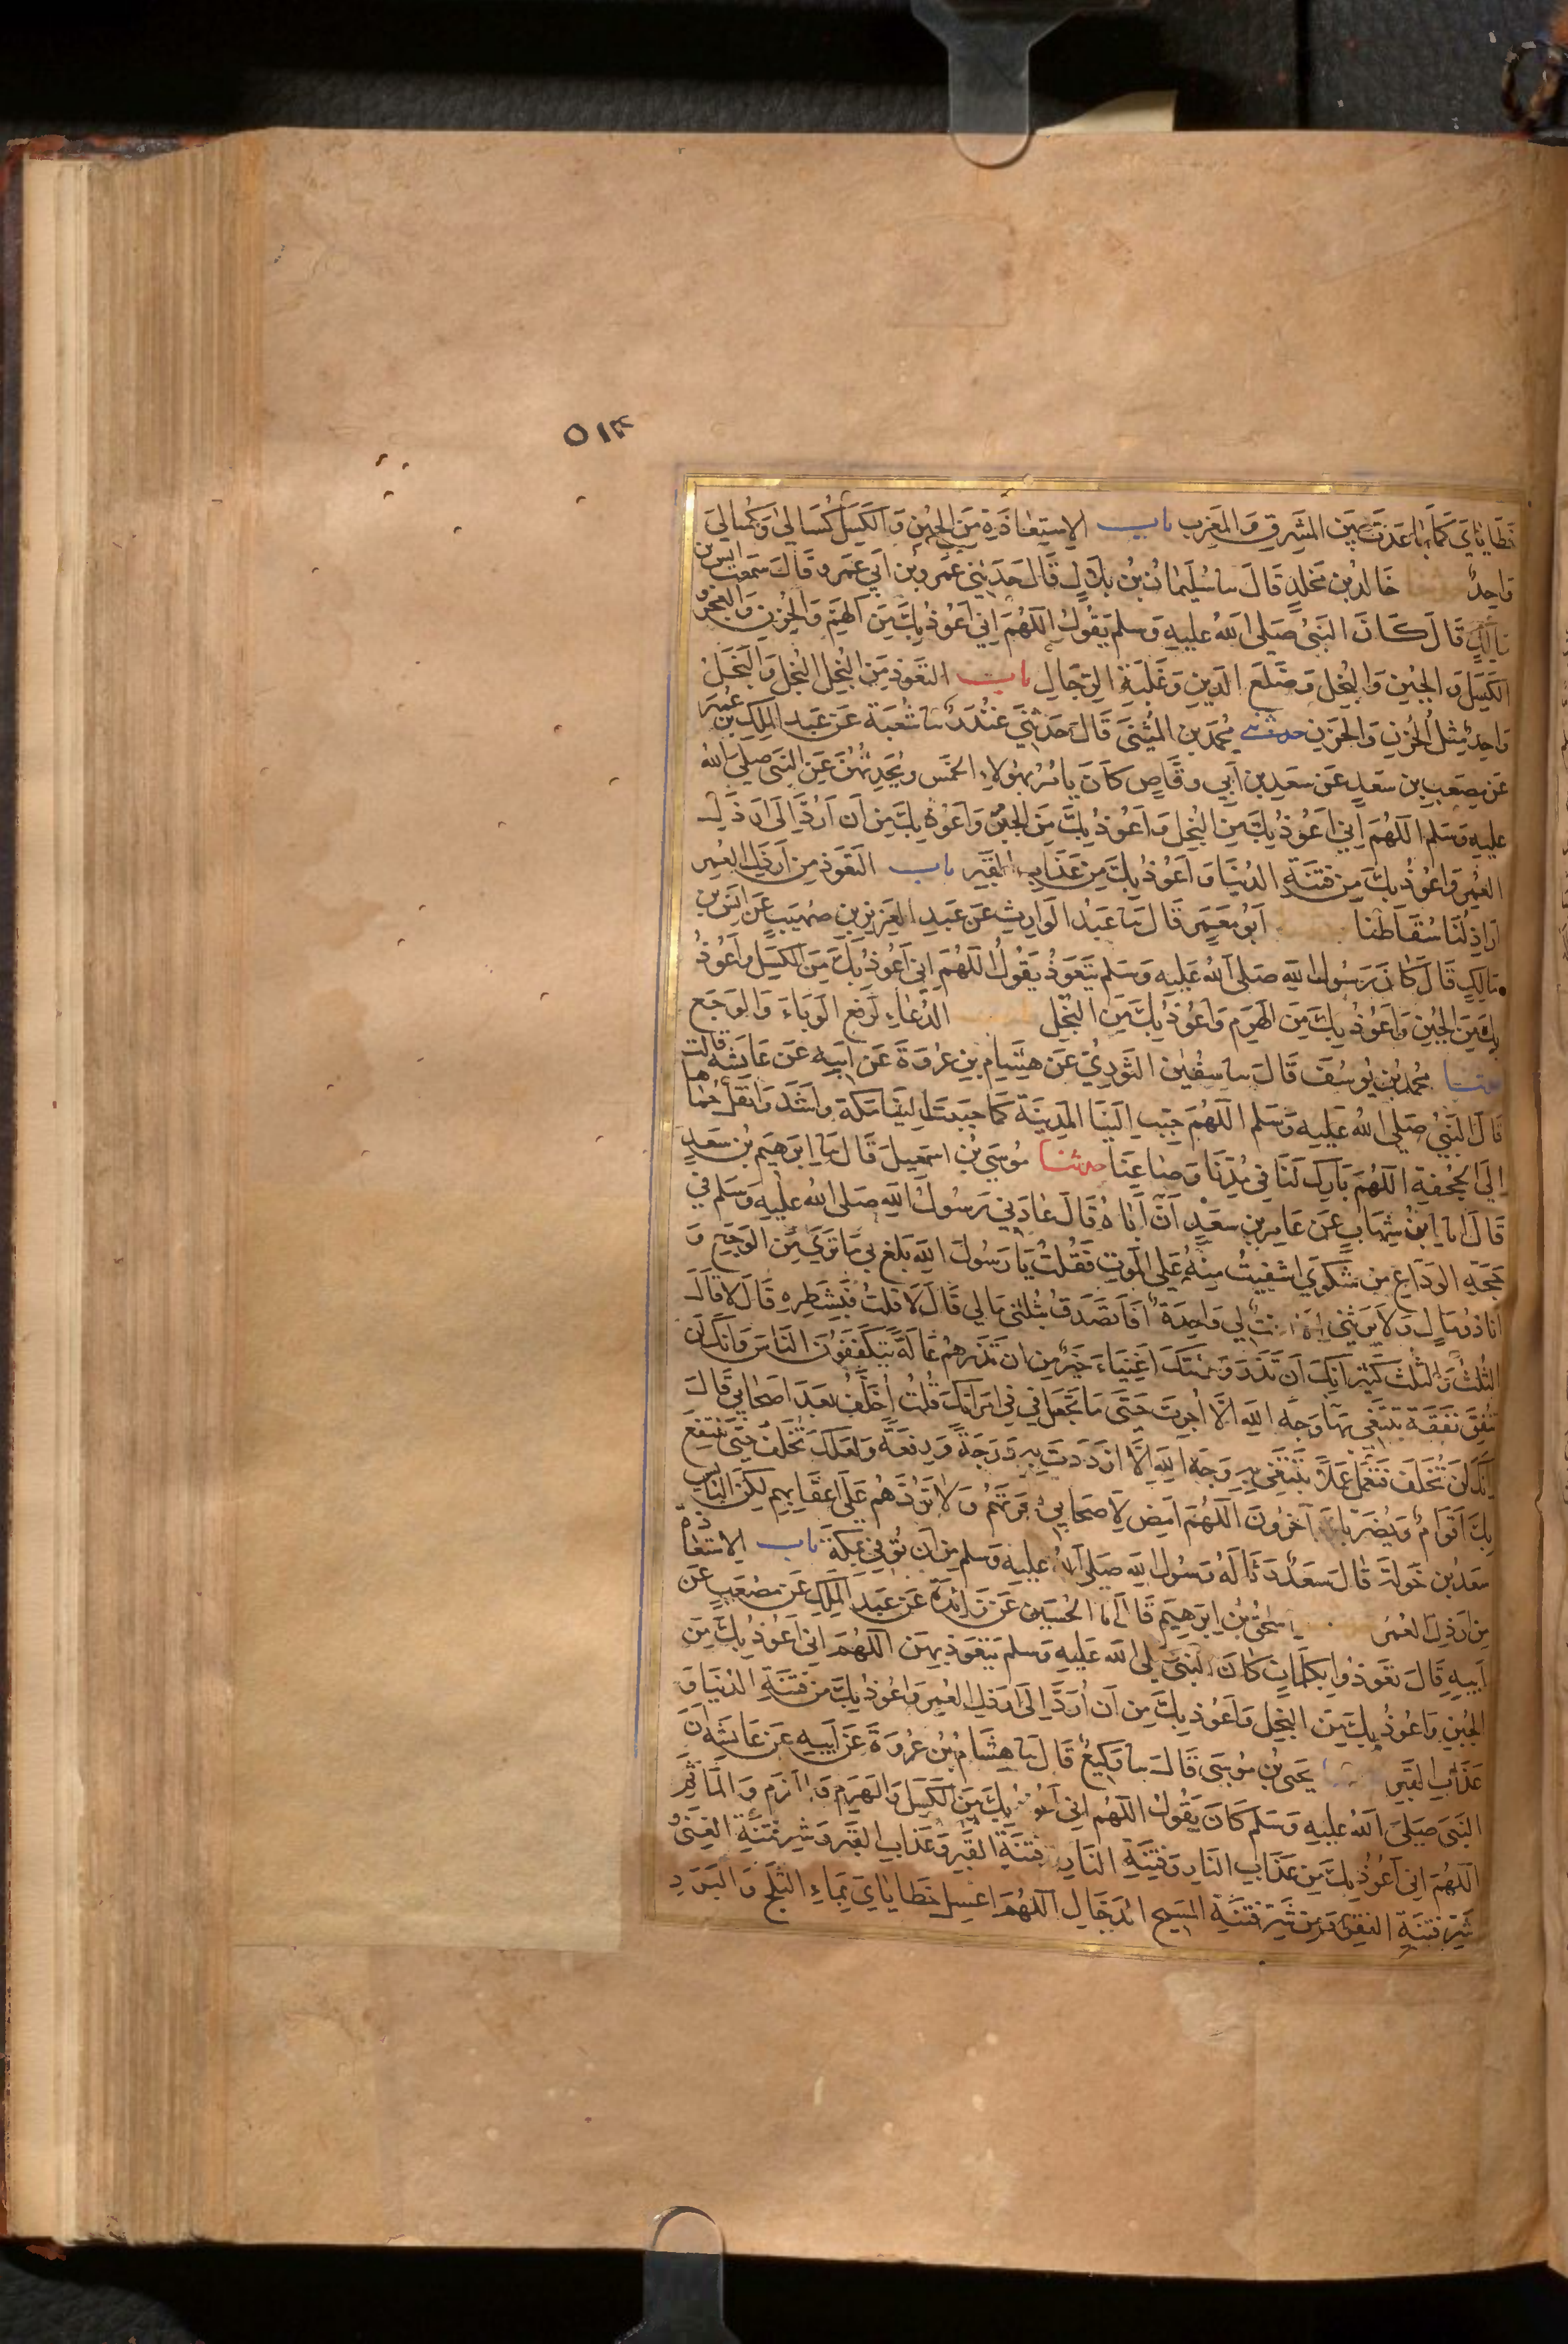 ٥١٤
خَطَايَايَ كَمَا بَاعَدْتَ بَيْنَ المَشْرِقِ وَالمَغْرِبِ باب الاِسْتِعَاذَةِ مِنَ الجُبْنِ وَالْكَسَلِ كُسَالَى وَكَسَالَى
وَاحِدٌ خَالِدُ بْنُ مَخْلَدٍ قَالَ سا سُلَيْمَانُ بْنُ بِلَالٍ قَالَ حَدَّثَنِي عَمْرُو بْنُ أَبِي عَمْرٍو قَالَ سَمِعْتُ أنس بن
مَالِكٍ قَالَ كَانَ النَّبِيُّ صَلَّى اللهُ عَلَيْهِ وَسَلَّمَ يَقُولُ اللَّهُمَّ إِنِّي أَعُوذُ بِكَ مِنَ الهَمِّ وَالحُزْنِ وَالعَجْزِ وَ
الكَسَلِ وَالجُبْنِ وَالبُخْلِ وَضَلَعِ الدَّيْنِ وَغَلَبَةِ الرِّجَالِ باب التَّعَوُّذِ مِنَ البُخْلِ البُخْلُ وَالبَخَلُ
وَاحِدٌ مِثْلُ الحُزْنِ وَالحَزَنِ حدثني مُحَمَّدُ بْنُ المُثَنَّى قَالَ حَدَّثَنِي غُنْدَرٌ سا شُعْبَةُ عَنْ عَبْدِ المَلِكِ بْنِ عُمَيْرٍ
عَنْ مُصْعَبِ بْنِ سَعْدٍ عَنْ سَعْدِ بْنِ أَبِي وَقَّاصٍ كَانَ يَأْمُرُ بِهَؤُلَاءِ الخَمْسِ وَيُحَدِّثُهُنَّ عَنِ النَّبِيِّ صَلَّى اللهُ
عَلَيْهِ وَسَلَّمَ اللَّهُمَّ إِنِّي أَعُوذُ بِكَ مِنَ البُخْلِ وَأَعُوذُ بِكَ مِنَ الجُبْنِ وَأَعُوذُ بِكَ مِنْ أَنْ أُرَدَّ إِلَى أَرْذَلِ
العُمُرِ وَأَعُوذُ بِكَ مِنْ فِتْنَةِ الدُّنْيَا وَأَعُوذُ بِكَ مِنْ عَذَابِ القَبْرِ باب التَّعَوُّذِ مِنْ أَرْذَلِ العُمُرِ
أَرَاذِلُنَا سُقَّاطُنَا أَبُو مَعْمَرٍ قَالَ سا عَبْدُ الوَارِثِ عَنْ عَبْدِ العَزِيزِ بْنِ صُهَيْبٍ عَنْ أَنَسِ بْنِ
مَالِكٍ قَالَ كَانَ رَسُولُ اللهِ صَلَّى اللهُ عَلَيْهِ وَسَلَّمَ يَتَعَوَّذُ يَقُولُ اللَّهُمَّ إِنِّي أَعُوذُ بِكَ مِنَ الكَسَلِ وَأَعُوذُ
بِكَ مِنَ الجُبْنِ وَأَعُوذُ بِكَ مِنَ الهَرَمِ وَأَعُوذُ بِكَ مِنَ البُخْلِ الدُّعَاءِ لِرَفْعِ الوَبَاءِ وَالوَجَعِ
حدثنا مُحَمَّدُ بْنُ يُوسُفَ قَالَ سا سُفْيَنُ الثَّوْرِيُّ عَنْ هِشَامِ بْنِ عُرْوَةَ عَنْ أَبِيهِ عَنْ عَائِشَةَ قالت
قَالَ النَّبِيُّ صَلَّى اللهُ عَلَيْهِ وَسَلَّمَ اللَّهُمَّ حَبِّبْ إِلَيْنَا المَدِينَةَ كَمَا حَبَّبْتَ إِلَيْنَا مَكَّةَ وَأَشَدَّ وَانْقُلْ حُمَّاها
إِلَى الجُحْفَةِ اللَّهُمَّ بَارِكْ لَنَا فِي مُدِّنَا وَصَاعِنَا حدثنا مُوسَى بْنُ إِسْمَعِيلَ قَالَ سا إِبْرَهِيمُ بْنُ سَعْدٍ
قَالَ انا ابْنُ شِهَابٍ عَنْ عَامِرِ بْنِ سَعْدٍ أَنَّ أَبَاهُ قَالَ عَادَنِي رَسُولُ اللهِ صَلَّى اللهُ عَلَيْهِ وَسَلَّمَ فِي
حَجَّةِ الوَدَاعِ مِنْ شَكْوَى أَشْفَيْتُ مِنْهُ عَلَى المَوْتِ فَقُلْتُ يَا رَسُولَ اللهِ بَلَغَ بِي مَا تَرَى مِنَ الوَجَعِ وَ
أَنَا ذُو مَالٍ وَلَا يَرِثُنِي إِلَّا ابْنَتٌ لِي وَاحِدَةٌ أَفَأَتَصَدَّقُ بِثُلُثَيْ مَالِي قَالَ لَا قُلْتُ فَبِشَطْرِهِ قَالَ لَا قَالَ
الثُّلُثُ وَالثُّلُثُ كَثِيرٌ إِنَّكَ أَنْ تَذَرَ وَرَثَتَكَ أَغْنِيَاءَ خَيْرٌ مِنْ أَنْ تَذَرَهُمْ عَالَةً يَتَكَفَّفُونَ النَّاسَ وَإِنَّكَ لَنْ
تُنْفِقَ نَفَقَةً تَبْتَغِي بِهَا وَجْهَ اللهِ إِلَّا أُجِرْتَ حَتَّى مَا تَجْعَلُ فِي فِي امْرَأَتِكَ قُلْتُ أُخَلَّفُ بَعْدَ أَصْحَابِي قَالَ
إِنَّكَ لَنْ تُخَلَّفَ فَتَعْمَلَ عَمَلًا تَبْتَغِي بِهِ وَجْهَ اللهِ إِلَّا ازْدَدْتَ بِهِ دَرَجَةً وَرِفْعَةً وَلَعَلَّكَ تُخَلَّفُ حَتَّى يَنْتَفِعَ
بِكَ أَقْوَامٌ وَيُضَرَّ بِكَ آخَرُونَ اللَّهُمَّ أَمْضِ لِأَصْحَابِي هِجْرَتَهُمْ وَلَا تَرُدَّهُمْ عَلَى أَعْقَابِهِمْ لَكِنِ البَائِسُ
سَعْدُ بْنُ خَوْلَةَ قَالَ سَعْدٌ رَثَا لَهُ رَسُولُ اللهِ صَلَّى اللهُ عَلَيْهِ وَسَلَّمَ مِنْ أَنْ تُوُفِّيَ بِمَكَّةَ باب الاِسْتِعَاذَةِ
مِنْ أَرْذَلِ العُمُرِ إِسْحَقُ بْنُ إِبْرَهِيمَ قَالَ انا الحُسَيْنُ عَنْ زَائِدَةَ عَنْ عَبْدِ المَلِكِ عَنْ مُصْعَبٍ عَنْ
أَبِيهِ قَالَ تَعَوَّذُوا بِكَلِمَاتٍ كَانَ النَّبِيُّ صَلَّى اللهُ عَلَيْهِ وَسَلَّمَ يَتَعَوَّذُ بِهِنَّ اللَّهُمَّ إِنِّي أَعُوذُ بِكَ مِنَ
الجُبْنِ وَأَعُوذُ بِكَ مِنَ البُخْلِ وَأَعُوذُ بِكَ مِنْ أَنْ أُرَدَّ إِلَى أَرْذَلِ العُمُرِ وَأَعُوذُ بِكَ مِنْ فِتْنَةِ الدُّنْيَا وَ
عَذَابِ القَبْرِ يَحْيَى بْنُ مُوسَى قَالَ سا وَكِيعٌ قَالَ سا هِشَامُ بْنُ عُرْوَةَ عَنْ أَبِيهِ عَنْ عَائِشَةَ أَنَّ
النَّبِيَّ صَلَّى اللهُ عَلَيْهِ وَسَلَّمَ كَانَ يَقُولُ اللَّهُمَّ إِنِّي أَعُوذُ بِكَ مِنَ الكَسَلِ وَالهَرَمِ وَالمَغْرَمِ وَالمَأْثَمِ
اللَّهُمَّ إِنِّي أَعُوذُ بِكَ مِنْ عَذَابِ النَّارِ وَفِتْنَةِ النَّارِ وَفِتْنَةِ القَبْرِ وَعَذَابِ القَبْرِ وَشَرِّ فِتْنَةِ الغِنَى وَ
شَرِّ فِتْنَةِ الفَقْرِ وَمِنْ شَرِّ فِتْنَةِ المَسِيحِ الدَّجَّالِ اللَّهُمَّ اغْسِلْ خَطَايَايَ بِمَاءِ الثَّلْجِ وَالبَرَدِ